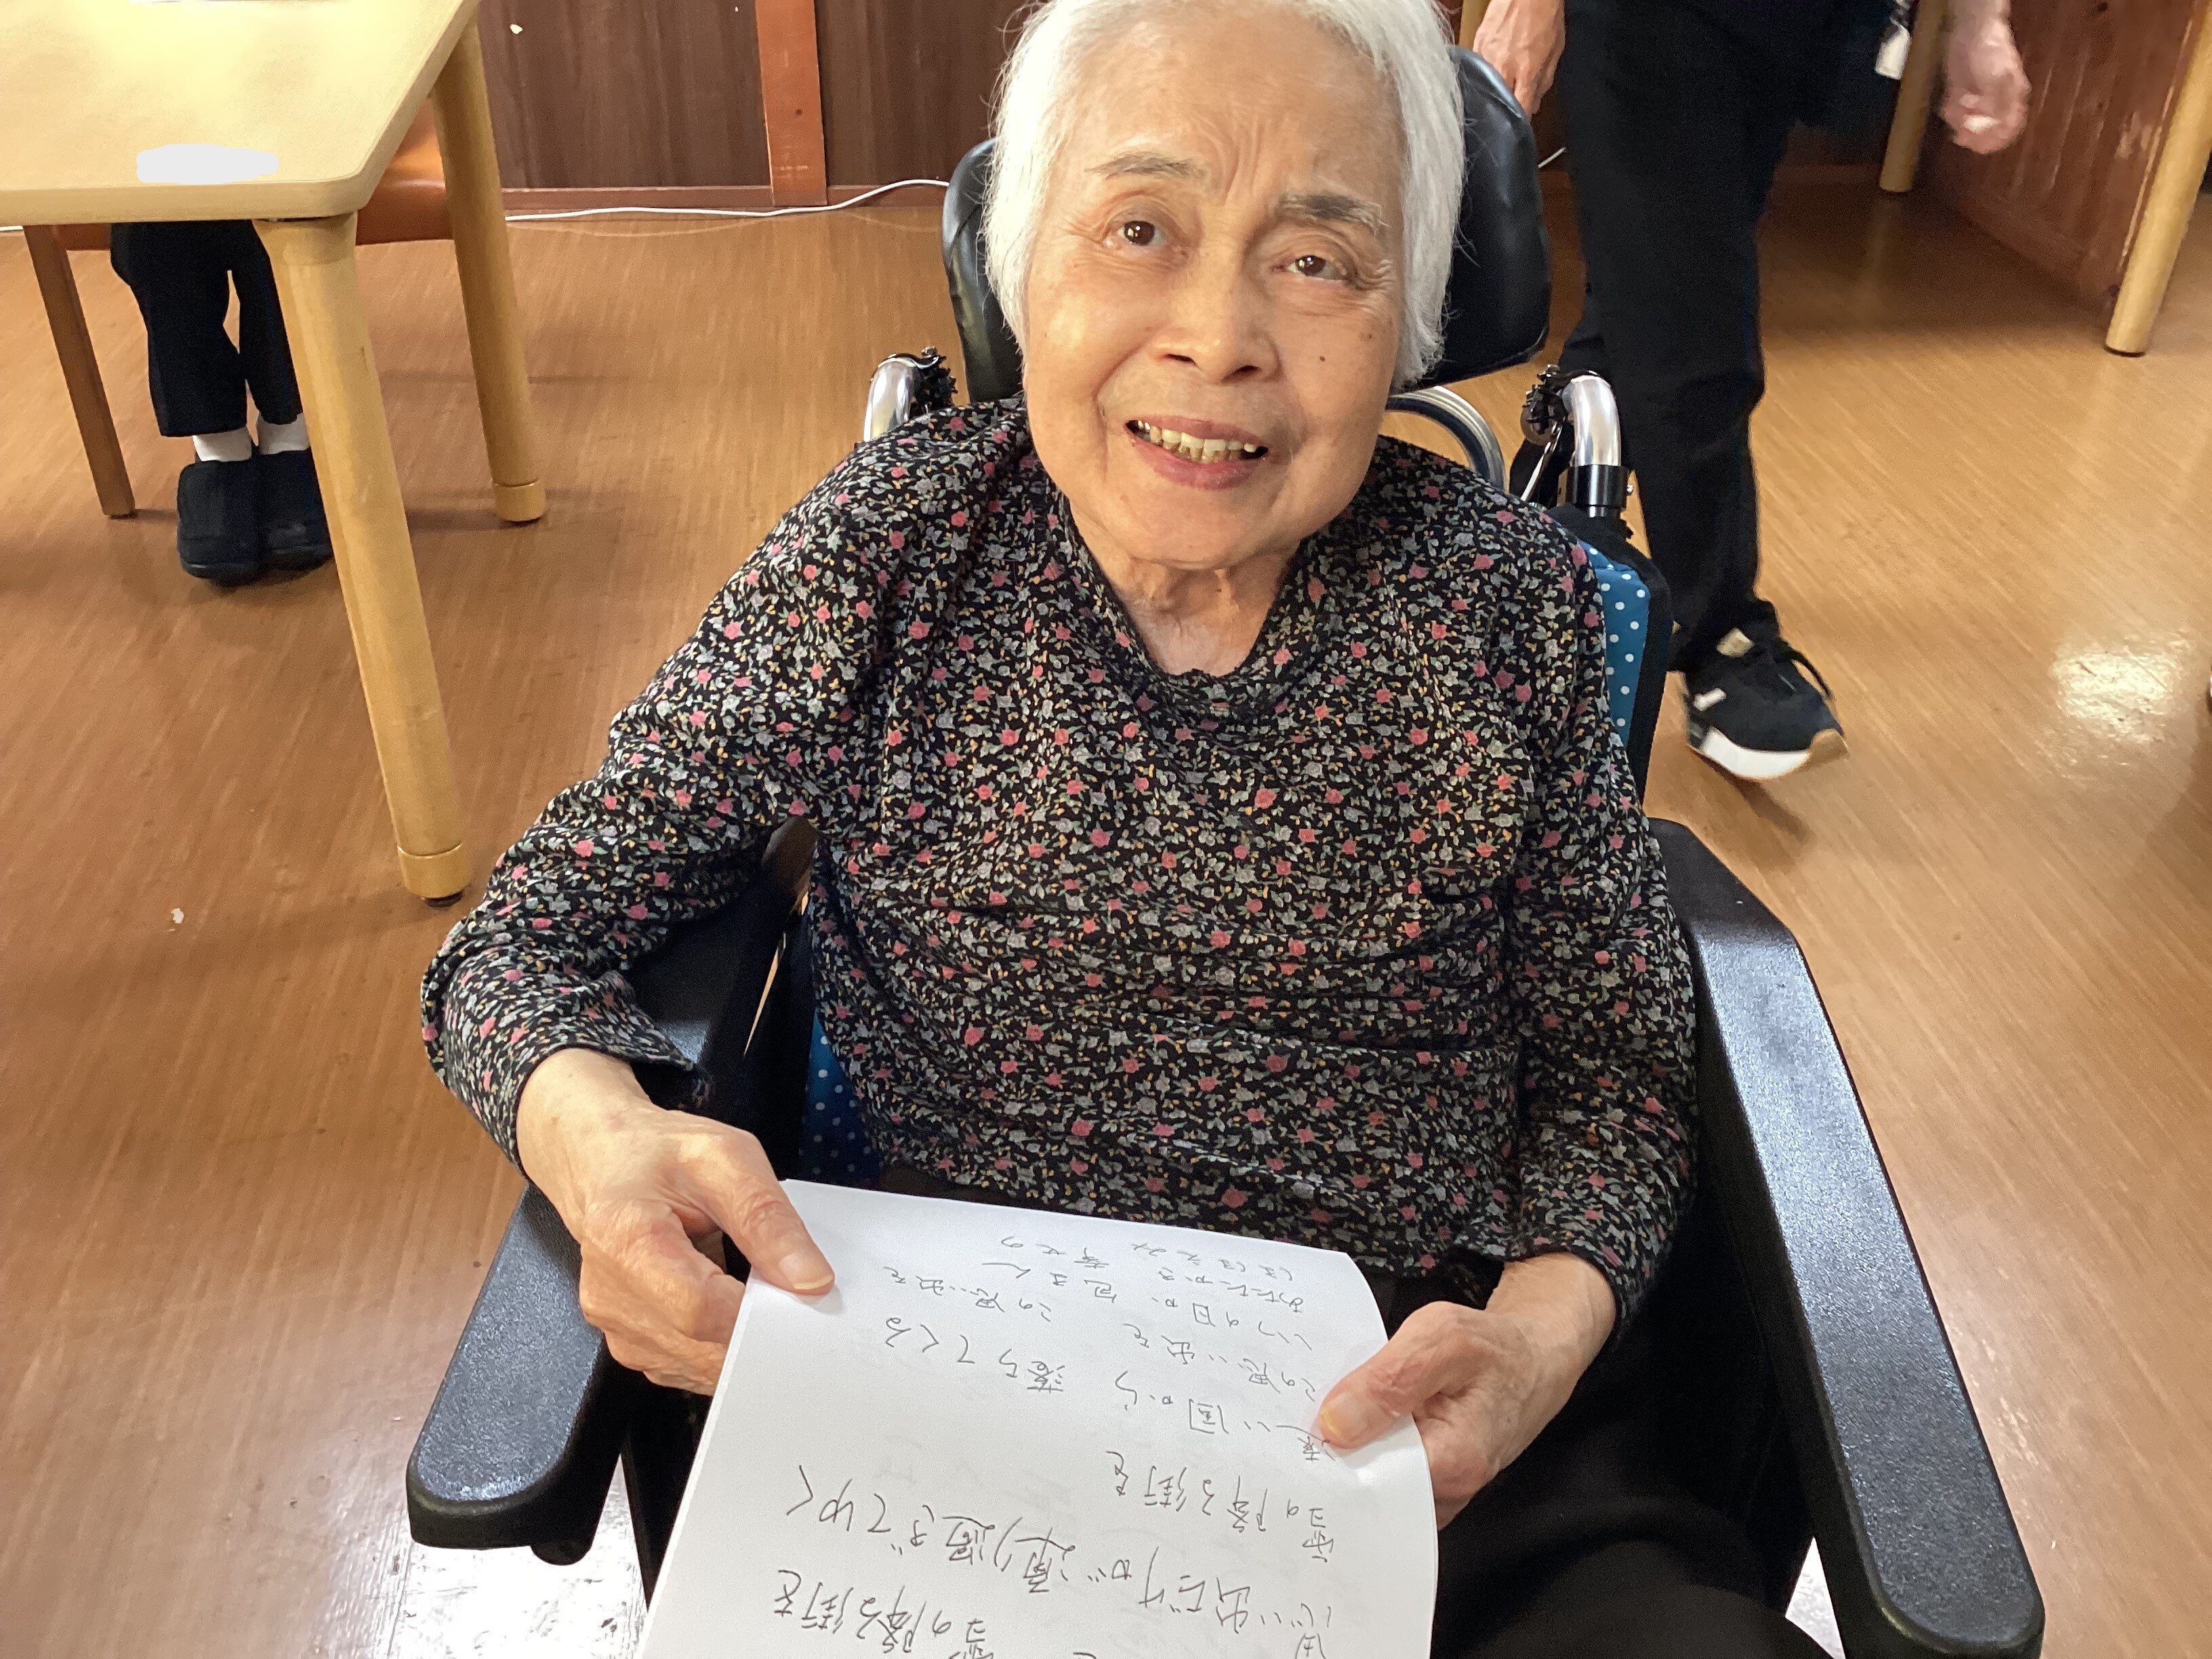 雪の降る街を
思い出だけが通り過ぎてゆく
雪の降る街を
遠い国から 落ちてくる
この思い出を この思い出を
いつの日か 包まん
あたたかき 幸せの
ほほえみ